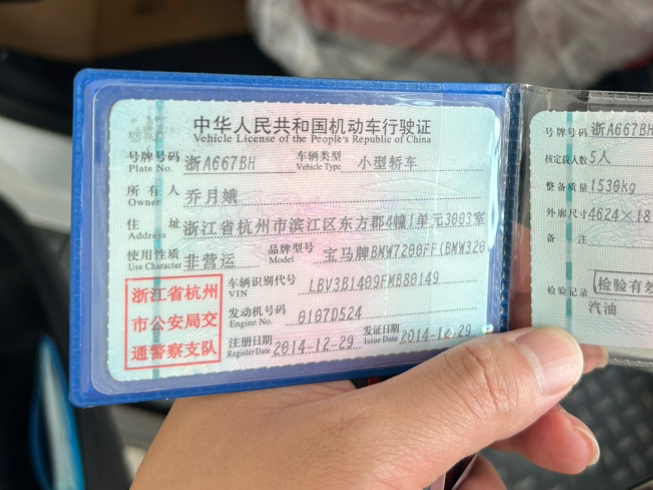 中华人民共和国机动车行驶证
Vehicle License of the People's Republic of China
号牌号码 浙A667BH 车辆类型 小型轿车
Plate No. Vehicle Type
所有人 乔月娥
Owner
住址 浙江省杭州市滨江区东方郡4幢1单元3003室
Address
使用性质 非营运 品牌型号 宝马牌BMW7200FF(BMW320
Use Character Model
浙江省杭州
市公安局交
通警察支队
车辆识别代号 LBV3B1409FMB80149
VIN
发动机号码 0107D524
Engine No.
注册日期 2014-12-29 发证日期 2014-12-29
Register Date Issue Date
号牌号码 浙A667BH
核定载人数 5人
整备质量 1530kg
外廓尺寸 4624×18
备注
检验记录 检验有效
汽油